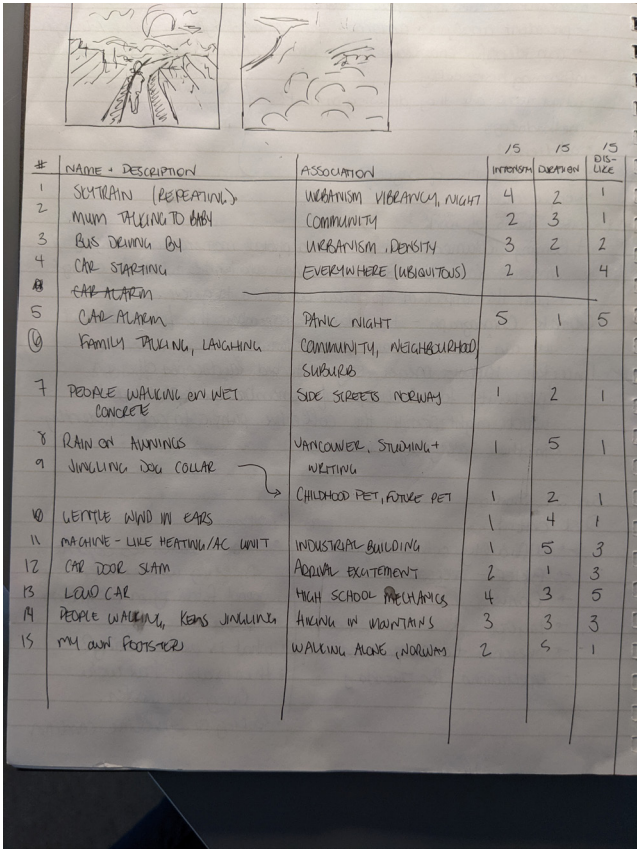 /5 /5 /5
# NAME + DESCRIPTION ASSOCIATION INTENSITY DURATION DIS-LIKE
1 SKYTRAIN (REPEATING) URBANISM VIBRANCY, NIGHT 4 2 1
2 MUM TALKING TO BABY COMMUNITY 2 3 1
3 BUS DRIVING BY URBANISM, DENSITY 3 2 2
4 CAR STARTING EVERYWHERE (UBIQUITOUS) 2 1 4
CAR ALARM
5 CAR ALARM PANIC NIGHT 5 1 5
6 FAMILY TALKING, LAUGHING COMMUNITY, NEIGHBOURHOOD,
SUBURB
7 PEOPLE WALKING ON WET SIDE STREETS NORWAY 1 2 1
CONCRETE
8 RAIN ON AWNINGS VANCOUVER, STUDYING + 1 5 1
WRITING
9 JINGLING DOG COLLAR
CHILDHOOD PET, FUTURE PET 1 2 1
10 GENTLE WIND IN EARS 1 4 1
11 MACHINE-LIKE HEATING/AC UNIT INDUSTRIAL BUILDING 1 5 3
12 CAR DOOR SLAM ARRIVAL EXCITEMENT 2 1 3
13 LOUD CAR HIGH SCHOOL MECHANICS 4 3 5
14 PEOPLE WALKING, KEYS JINGLING HIKING IN MOUNTAINS 3 3 3
15 MY OWN FOOTSTEPS WALKING ALONE, NORWAY 2 5 1